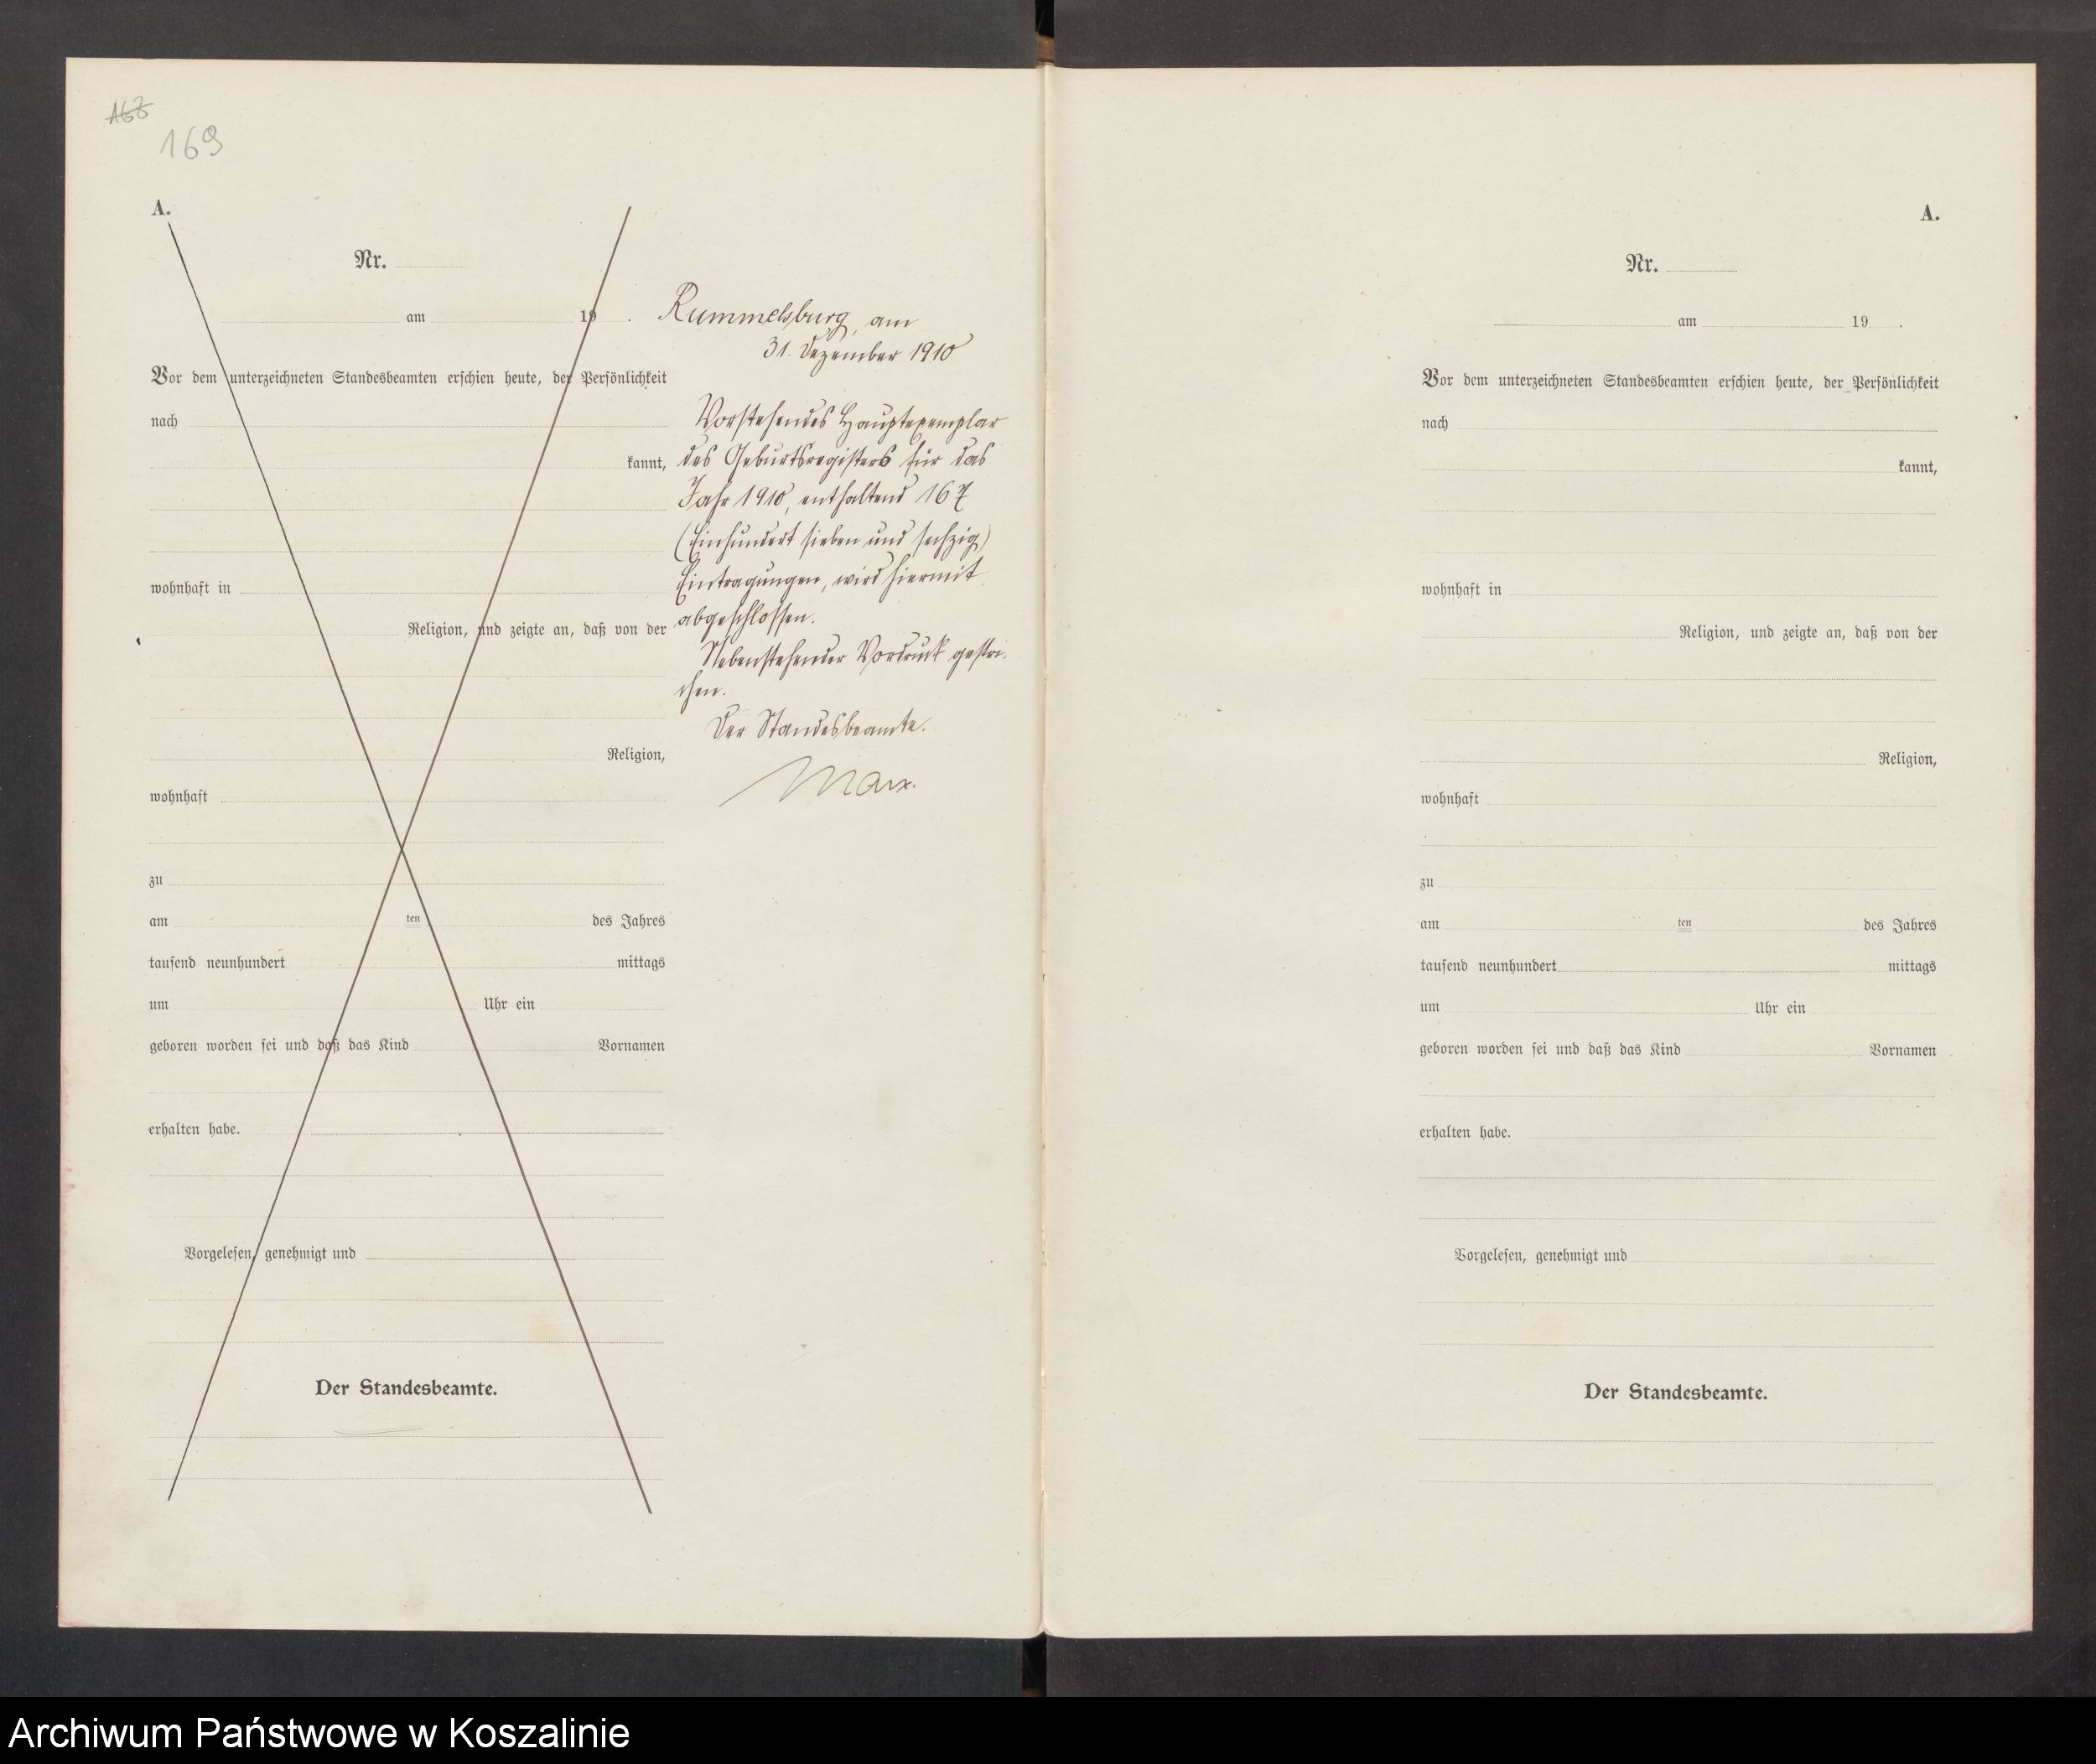 167
169
A.
Nr.
am 19 .
Vor dem unterzeichneten Standesbeamten erschien heute, der Persönlichkeit
nach
kannt,
wohnhaft in
Religion, und zeigte an, daß von der
Religion,
wohnhaft
zu
am ten des Jahres
tausend neunhundert mittags
um Uhr ein
geboren worden sei und daß das Kind Vornamen
erhalten habe.
Vorgelesen, genehmigt und
Der Standesbeamte.
Rummelsburg, am
31. Dezember 1910
Vorstehendes Hauptexemplar
des Geburtsregisters für das
Jahr 1910, enthaltend 167
(Einhundert sieben und sechzig)
Eintragungen, wird hiermit
abgeschlossen.
Nebenstehender Vordruck gestri-
chen.
Der Standesbeamte.
Marx.
A.
Nr.
am 19 .
Vor dem unterzeichneten Standesbeamten erschien heute, der Persönlichkeit
nach
kannt,
wohnhaft in
Religion, und zeigte an, daß von der
Religion,
wohnhaft
zu
am ten des Jahres
tausend neunhundert mittags
um Uhr ein
geboren worden sei und daß das Kind Vornamen
erhalten habe.
Vorgelesen, genehmigt und
Der Standesbeamte.
Archiwum Państwowe w Koszalinie